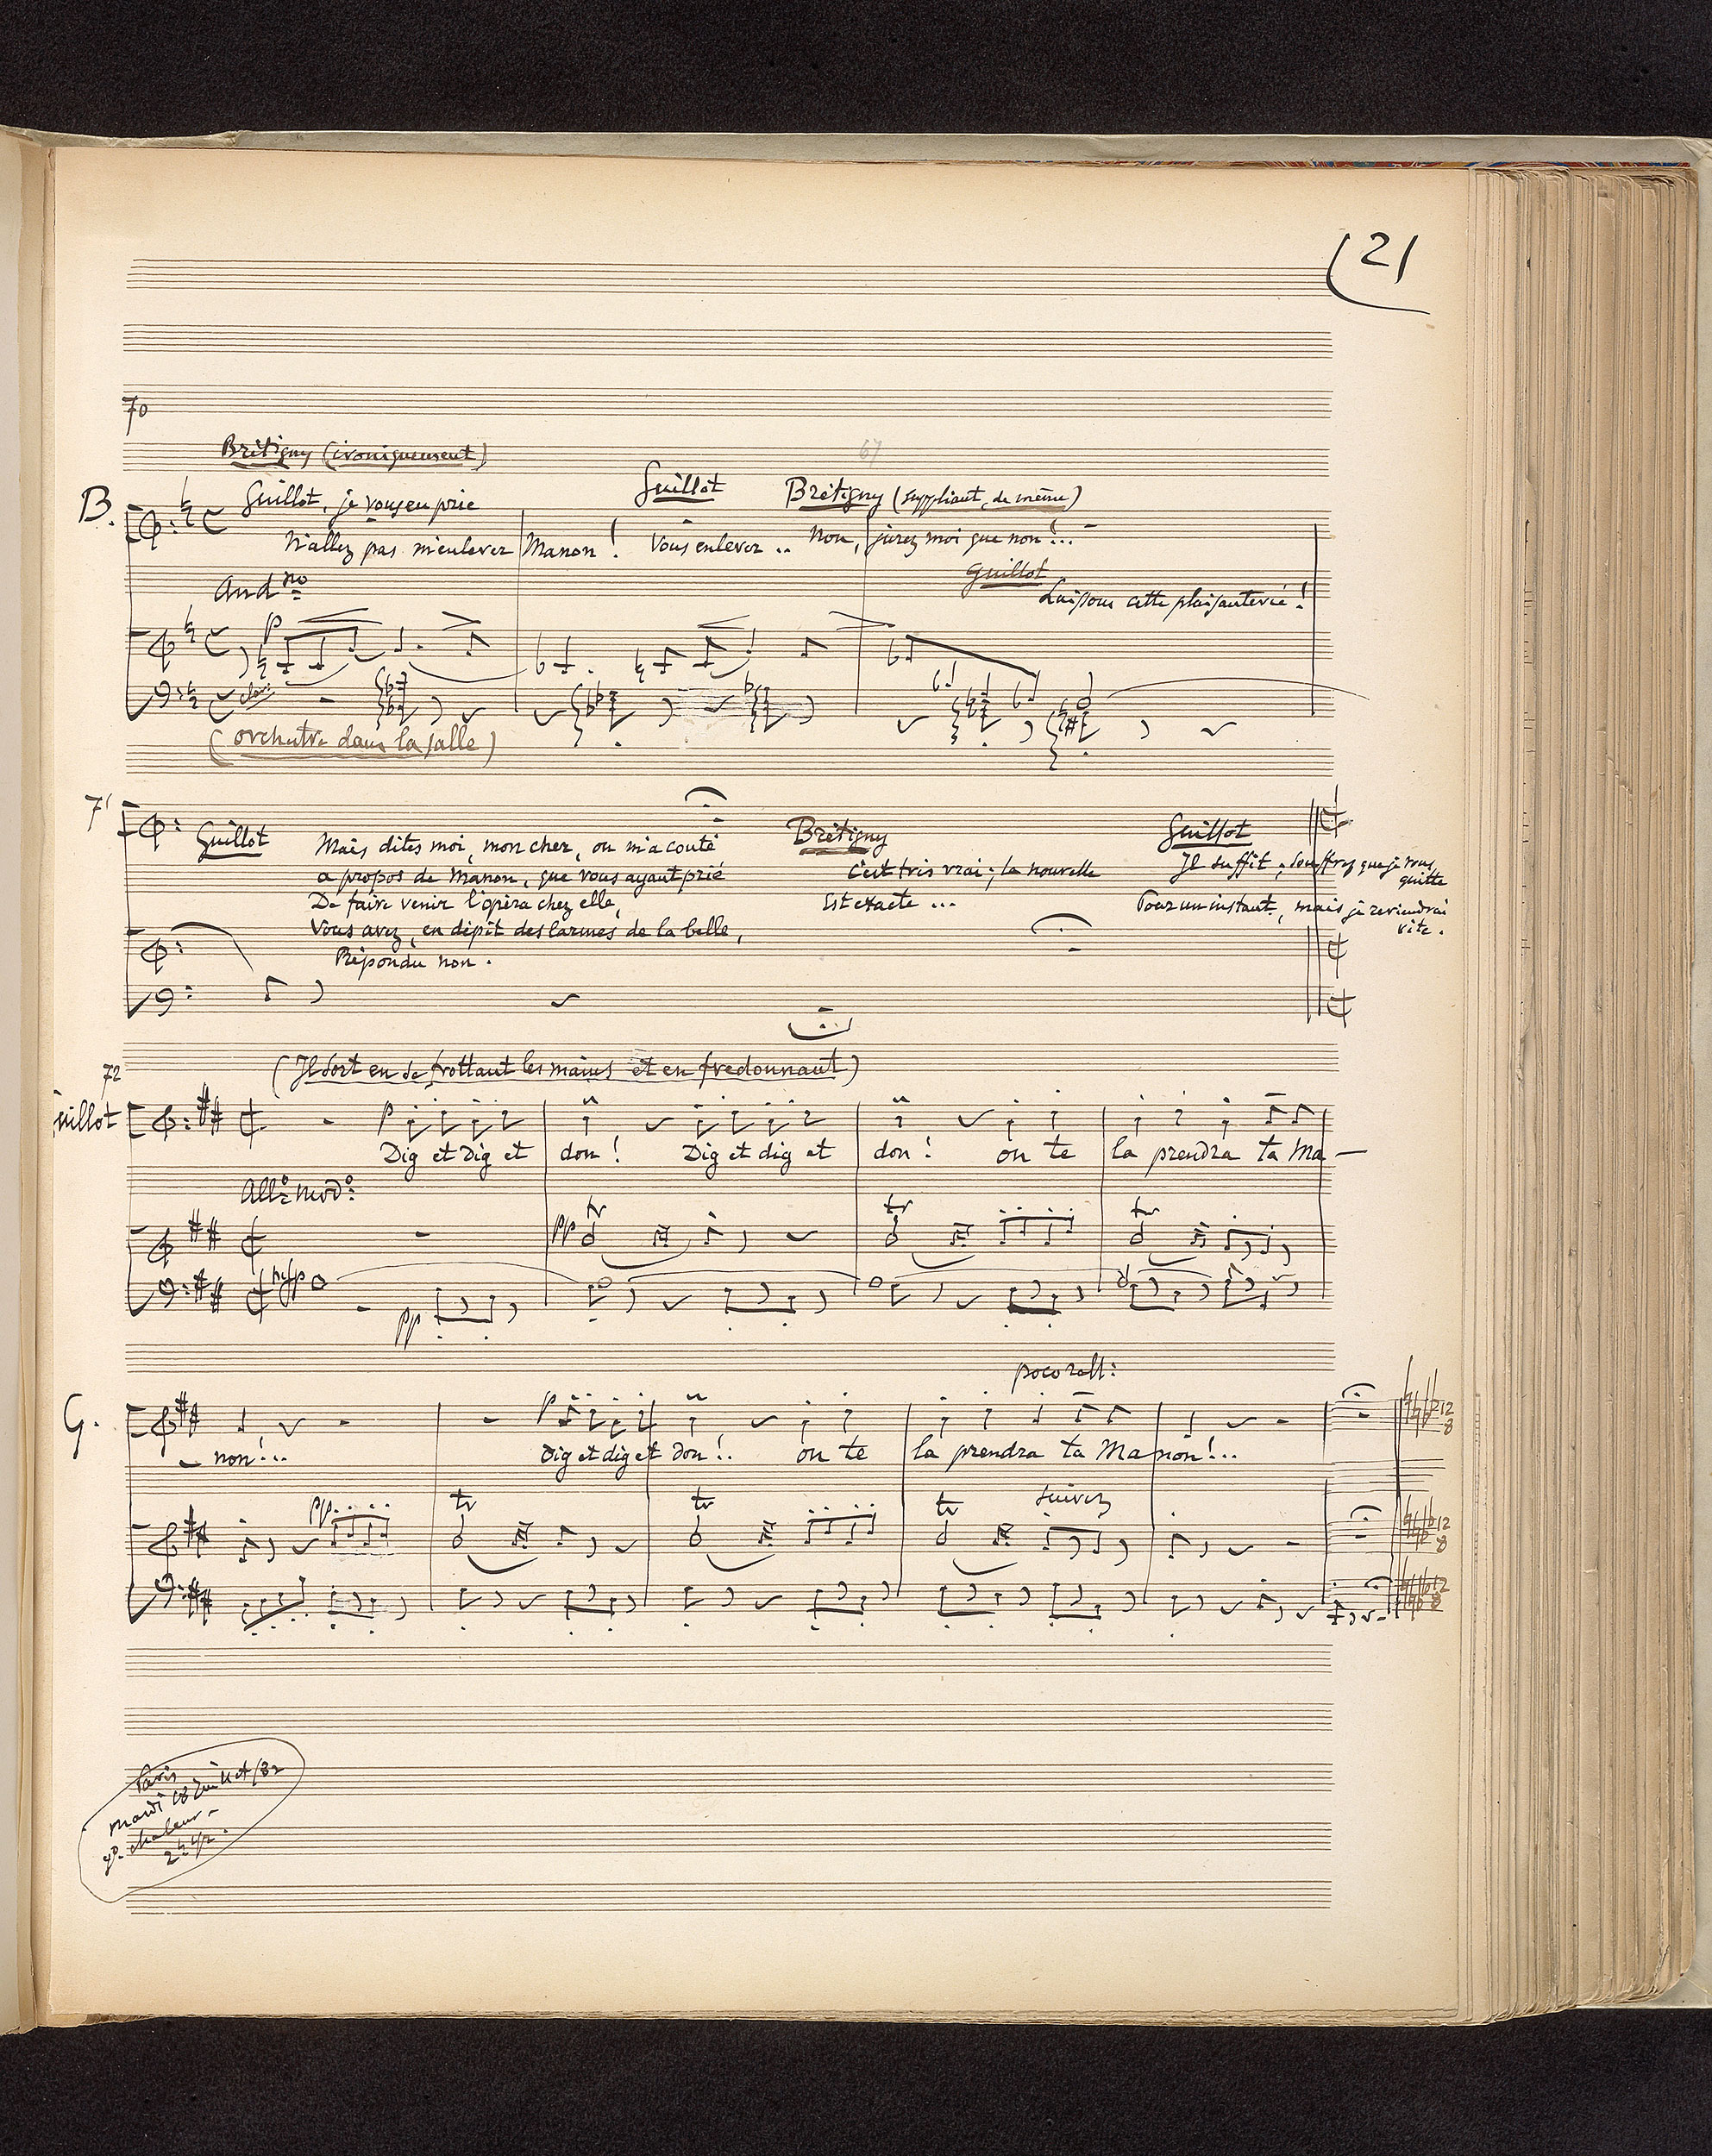 21
70
Brétigny (ironiquement)
67
B.
Guillot, je vous en prie
Guillot
Brétigny (suppliant, de même)
N'allez pas m'enlever Manon ! Vous enlever .. Non, jurez moi que non !...
And.no
Guillot
Laissons cette plaisanterie !
p
(orchestre dans la salle)
71
Guillot
Mais dites moi, mon cher, on m'a conté
a propos de Manon, que vous ayant prié
De faire venir l'opéra chez elle,
Vous avez, en dépit des larmes de la belle,
Répondu non.
Brétigny
C'est très vrai ; la nouvelle
Est exacte ...
Guillot
Il suffit ; souffrez que je vous quitte
Pour un instant, mais je reviendrai vite.
72
(Il sort en se frottant les mains et en fredonnant)
Guillot
p
Dig et Dig et don ! Dig et dig et don ! on te la prendra ta Ma —
All.o mod.o
pp tr tr tr
pp
poco rall:
G.
p
12 8
- non !... Dig et dig et don !.. on te la prendra ta Manon !...
pp tr tr tr suivez
12 8
12 8
Paris
mardi 18 Juillet /82
gde chaleur -
2h 1/2.